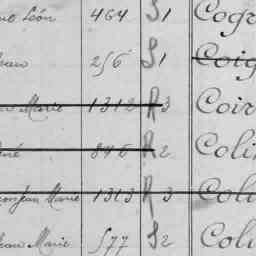 Léon 464 S 1 Cogr
256 S 1 Coig
Marie 1312 R 3 Coir
né 846 R 2 Coli
Jean Marie 1313 R 3 Coli
Jean Marie 577 S 2 Coli